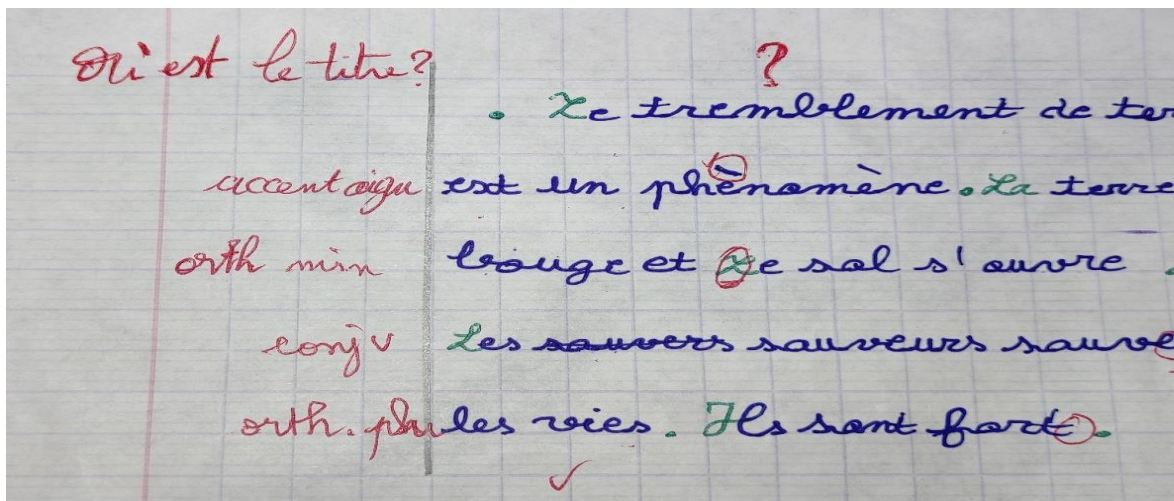 Où est le titre? ?
. Le tremblement de ter
accent aigu est un phènomène. La terre
orth min bouge et Le sol s'ouvre .
conj v Les sauvers sauveurs sauve
orth. plu les vies. Ils sont fort.